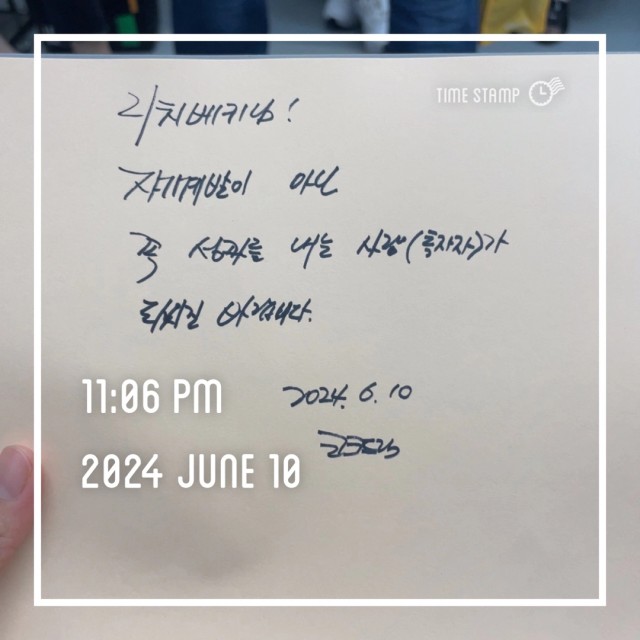 TIME STAMP
리치베키님!
자기계발이 아닌
꼭 성과를 내는 사람(투자자)가
되시길 바랍니다.
11:06 PM
2024. 6. 10
2024 JUNE 10